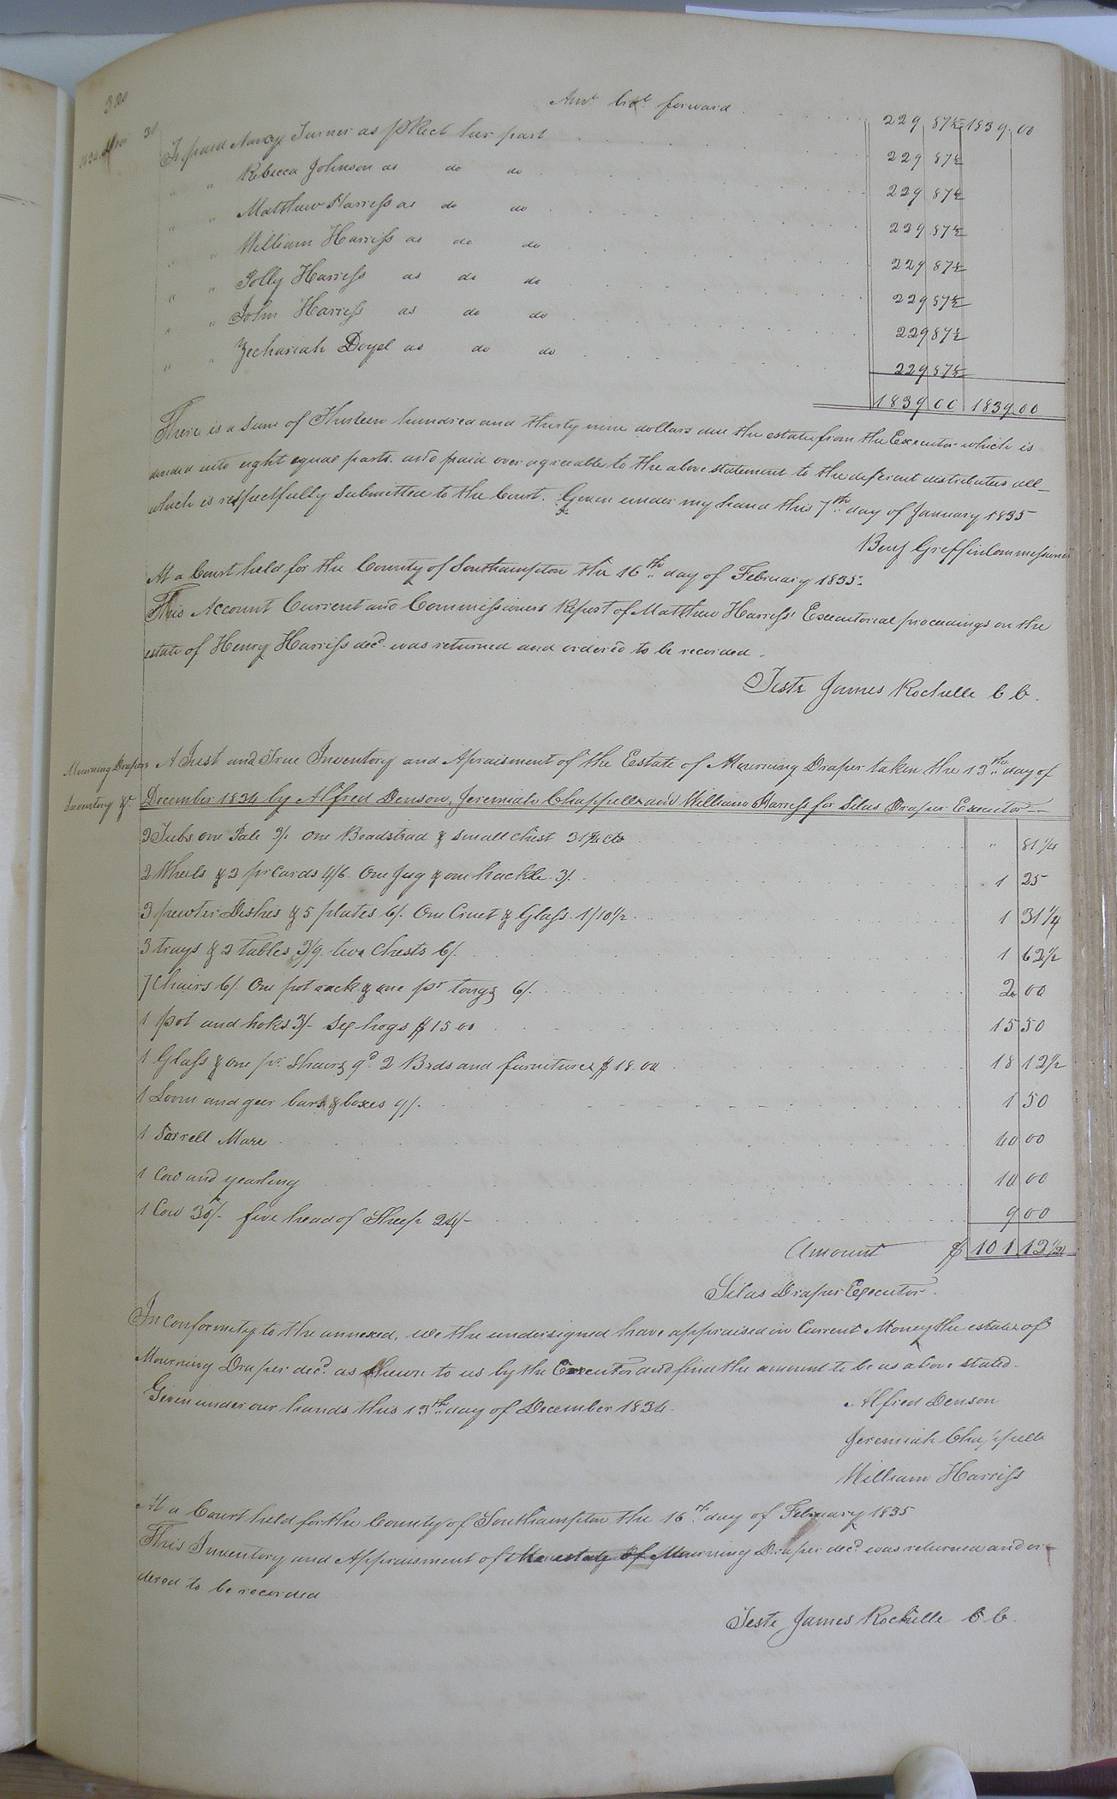 320
Amt brot forward 229 87½ 1839.00
31 To paid Nancy Turner as pr Rect her part 229 87½
" " Rebecca Johnson as do do 229 87½
" " Matthew Harriss as do do 229 87½
" " William Harriss as do do 229 87½
" " Polly Harriss as do do 229 87½
" " John Harriss as do do 229 87½
" " Zechariah Doyel as do do 229 87½
1839 00 1839.00
There is a sum of Thirteen hundred and thirty nine dollars due the estate from the Executor which is
divided into eight equal parts and paid over agreeable to the above statement to the deferent distributees all
which is respectfully submitted to the Court. Given under my hand this 7th day of January 1835
Benj Griffin Commissioner
At a Court held for the County of Southampton the 16th day of February 1835.
This Account Current and Commissioners Report of Matthew Harriss' Executorial proceedings on the
estate of Henry Harriss decd was returned and ordered to be recorded.
Teste James Rochelle C C.
Mourning Drapers
Inventory &c
A Just and True Inventory and Apraisment of the Estate of Mourning Draper taken the 13th day of
December 1834 by Alfred Denson, Jeremiah Chappell and William Harriss for Silas Draper Executor
3 Tubs one Pale 3/. one Beadstead & small Chest 31¼ cts " 81¼
2 Wheels & 2 pr Cards 4/6. One Jug & one hackle 3/. 1 25
3 pewter Dishes & 5 plates 6/. One Cruet & Glass 1/10½ 1 31¼
3 trays & 2 tables 3/9. two Chests 6/. 1 62½
7 Chairs 6/. One pot rack & one pr tongs 6/. 2 00
1 pot and hoks 3/- Six hogs $15 00 15 50
1 Glass & one pr Shears 9d. 2 Beds and furniture $18.00 18 12½
1 Loom and geer bars & boxes 9/. 1 50
1 Sorrell Mare 40 00
1 Cow and yearling 10 00
1 Cow 30/- five head of Sheep 24/- 9 00
Amount $ 101 12½
Silas Draper Executor.
In conformity to the annexed, we the undersigned have appraised in Current Money the estate of
Mourning Draper decd. as shewn to us by the Executor and find the amount to be as above stated.
Given under our hands this 13th day of December 1834.
Alfred Denson
Jeremiah Chappell
William Harriss
At a Court held for the County of Southampton the 16th day of February 1835
This Inventory and Appraisment of the estate of Mourning Draper decd was returned and or-
dered to be recorded
Teste James Rochelle C C.